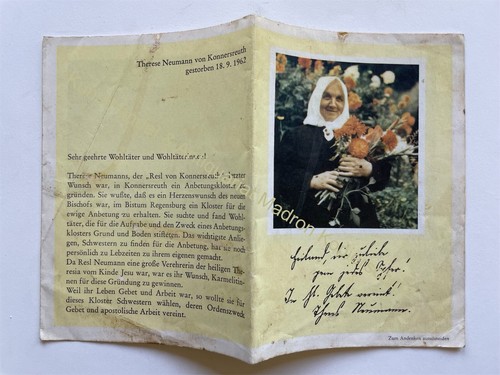 Therese Neumann von Konnersreuth
gestorben 18. 9. 1962
Sehr geehrte Wohltäter und Wohltäterinnen!
Therese Neumann, der „Resl von Konnersreuth“, letzter
Wunsch war, in Konnersreuth ein Anbetungskloster zu
gründen. Sie wußte, daß es ein Herzenswunsch des neuen
Bischofs war, im Bistum Regensburg ein Kloster für die
ewige Anbetung zu erhalten. Sie suchte und fand Wohl-
täter, die für die Aufgabe und den Zweck eines Anbetungs-
klosters Grund und Boden stifteten. Das wichtigste Anlie-
gen, Schwestern zu finden für die Anbetung, hat sie noch
persönlich zu Lebzeiten zu ihrem eigenen gemacht.
Da Resl Neumann eine große Verehrerin der heiligen The-
resia vom Kinde Jesu war, war es ihr Wunsch, Karmelitin-
nen für diese Gründung zu gewinnen.
Weil ihr Leben Gebet und Arbeit war, so wollte sie für
dieses Kloster Schwestern wählen, deren Ordenszweck
Gebet und apostolische Arbeit vereint.
Heiland, dir zuliebe
zum jedes Opfer!
In hl. Gebete vereint!
Theres Neumann.
Zum Andenken